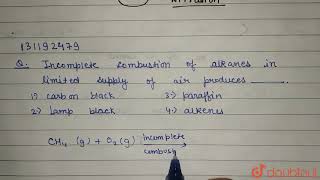 131192479
Q. Incomplete combustion of alkanes in
limited supply of air produces
1) carbon black 3) paraffin
2) lamp black 4) alkenes
CH₄ (g) + O₂ (g) incomplete
combus
doubtnut